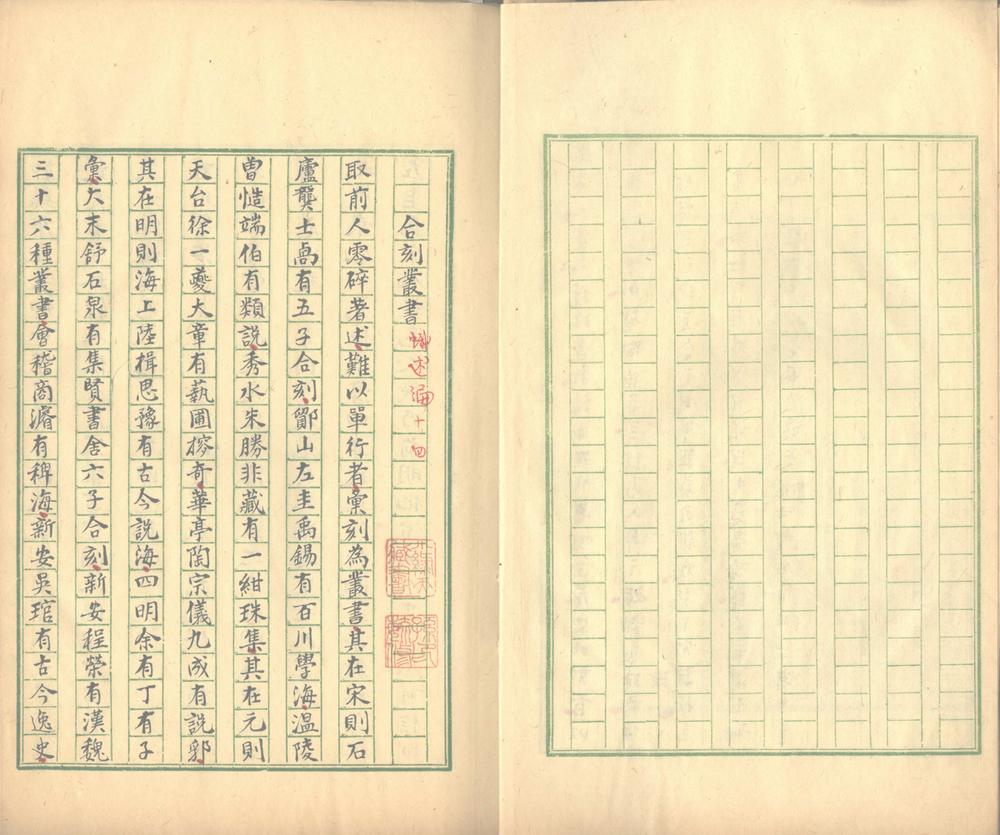 合刻叢書 述編十四
取前人零碎著述難以單行者彙刻為叢書其在宋則石
廬龔士卨有五子合刻鄮山左圭禹錫有百川學海溫陵
曾慥端伯有類說秀水朱勝非藏有一紺珠集其在元則
天台徐一夔大章有蓺圃搜奇華亭陶宗儀九成有說郛
其在明則海上陸楫思豫有古今說海四明余有丁有子
彙大末舒石泉有集賢書舍六子合刻新安程榮有漢魏
三十六種叢書會稽商濬有稗海新安吳琯有古今逸史